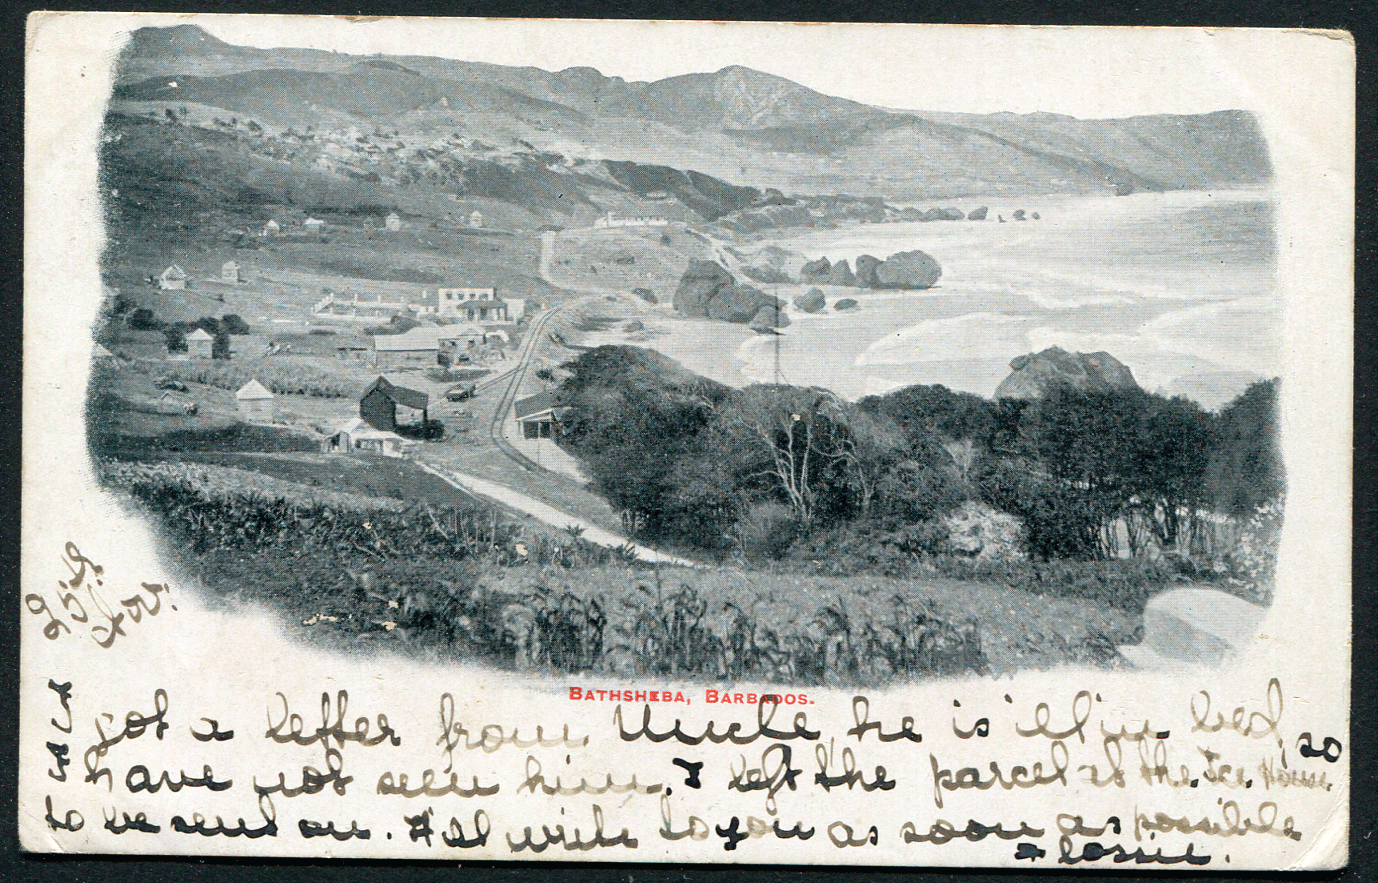 25th
Nov.
BATHSHEBA, BARBADOS.
I got a letter from Uncle, he is ill in bed, so
I have not seen him. I left the parcel at the Ice House
to be sent on. I'll write to you as soon as possible